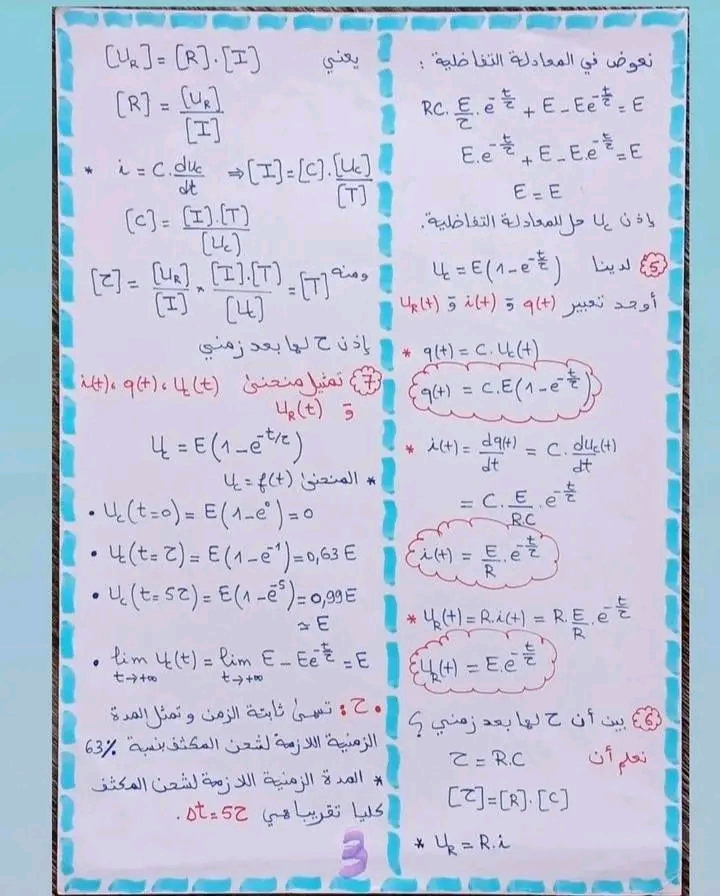 نعوض في المعادلة التفاضلية :
RC. E/τ . e^(-t/τ) + E - Ee^(-t/τ) = E
E.e^(-t/τ) + E - E.e^(-t/τ) = E
E = E
إذن Uc حل للمعادلة التفاضلية.
5) لدينا Uc = E(1 - e^(-t/τ))
أوجد تعبير q(t) و i(t) و UR(t)
* q(t) = C. Uc(t)
q(t) = C.E(1 - e^(-t/τ))
* i(t) = dq(t)/dt = C. duc(t)/dt
= C. E/R.C . e^(-t/τ)
i(t) = E/R . e^(-t/τ)
* UR(t) = R.i(t) = R. E/R . e^(-t/τ)
UR(t) = E.e^(-t/τ)
6) بين أن τ لها بعد زمني ؟
نعلم أن τ = R.C
[τ] = [R].[C]
* UR = R.i
يعني [UR] = [R].[I]
[R] = [UR]/[I]
* i = C. duc/dt ⇒ [I] = [C]. [Uc]/[T]
[C] = [I].[T]/[Uc]
ومنه [τ] = [UR]/[I] × [I].[T]/[Uc] = [T]
إذن τ لها بعد زمني
7) تمثيل منحنى Uc(t) ، q(t) ، i(t)
و UR(t)
Uc = E(1 - e^(-t/τ))
* المنحنى Uc = f(t)
• Uc(t=0) = E(1 - e^0) = 0
• Uc(t=τ) = E(1 - e^-1) = 0,63 E
• Uc(t=5τ) = E(1 - e^-5) = 0,99E
≃ E
• lim Uc(t) = lim E - Ee^(-t/τ) = E
t→+∞ t→+∞
• τ : تسمى ثابتة الزمن و تمثل المدة
الزمنية اللازمة لشحن المكثف بنسبة 63%
* المدة الزمنية اللازمة لشحن المكثف
كليا تقريبا هي Δt = 5τ .
3